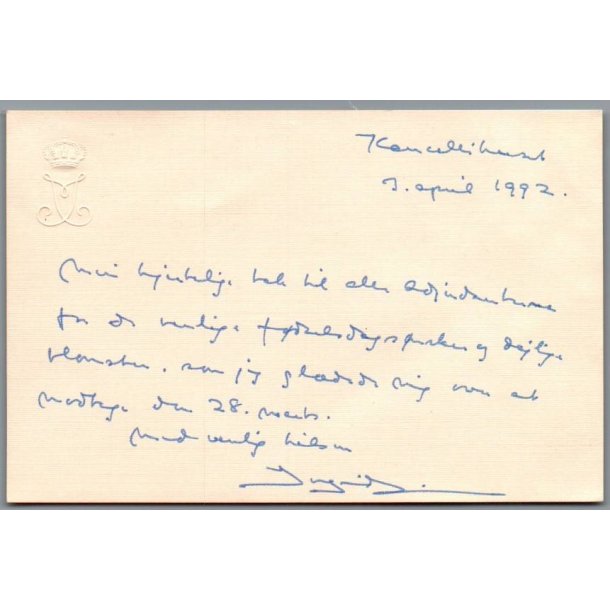 Kancellihuset
3. april 1992.
Min hjertelige tak til alle Adjudanterne
for de venlige fødselsdagsønsker og dejlige
blomster, som jeg glædede mig over at
modtage den 28. marts.
Med venlig hilsen
Ingrid